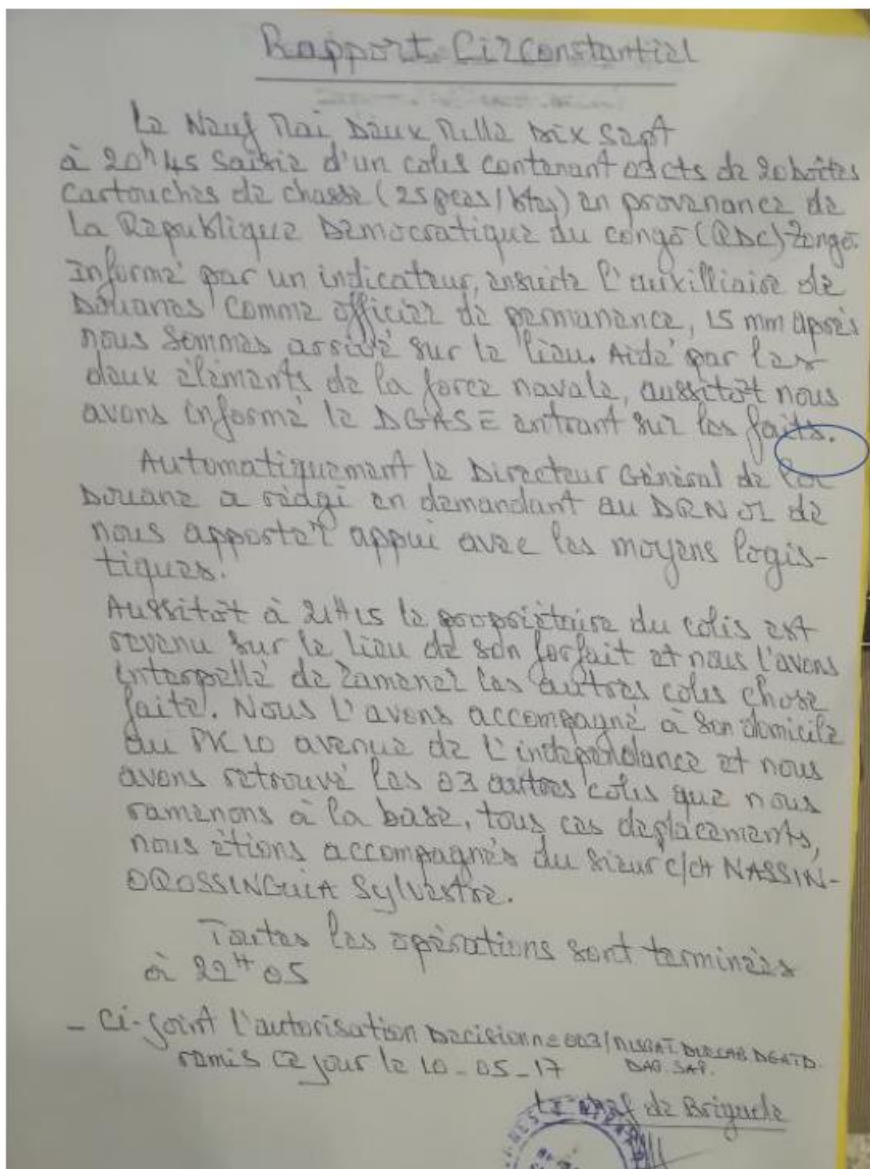 Rapport Circonstantiel
Le Neuf Mai Deux Mille Dix Sept
à 20h45 Saisie d'un colis contenant 03 cts de 20 boîtes
Cartouches de chasse (25 pcs/btes) en provenance de
la Republique Democratique du congo (RDC) Zongo.
Informé par un indicateur, ensuite l'auxilliaire de
Douanes comme officier de permanence, 15 mm après
nous sommes arrivé sur le lieu. Aidé par les
deux élèments de la force navale, aussitôt nous
avons informé le DGASE entrant sur les faits.
Automatiquement le Directeur Général de la
Douane a réagi en demandant au DRN 01 de
nous apporter appui avec les moyens logis-
tiques.
Aussitôt à 21H15 le propriétaire du colis est
revenu sur le lieu de son forfait et nous l'avons
interpellé de ramener les autres colis chose
faite. Nous l'avons accompagné à son domicile
au PK10 avenue de l'independance et nous
avons retrouvé les 03 autres colis que nous
ramenons à la base, tous ces deplacements,
nous étions accompagnés du sieur c/ch NASSIN-
OROSSINGUIA Sylvestre.
Toutes les opérations sont terminées
à 22H05
- Ci-joint l'autorisation Decision ne 003/ DIRCAB DGATD.
remis ce jour le 10-05-17 DAG. SAP.
Le chef de Brigade